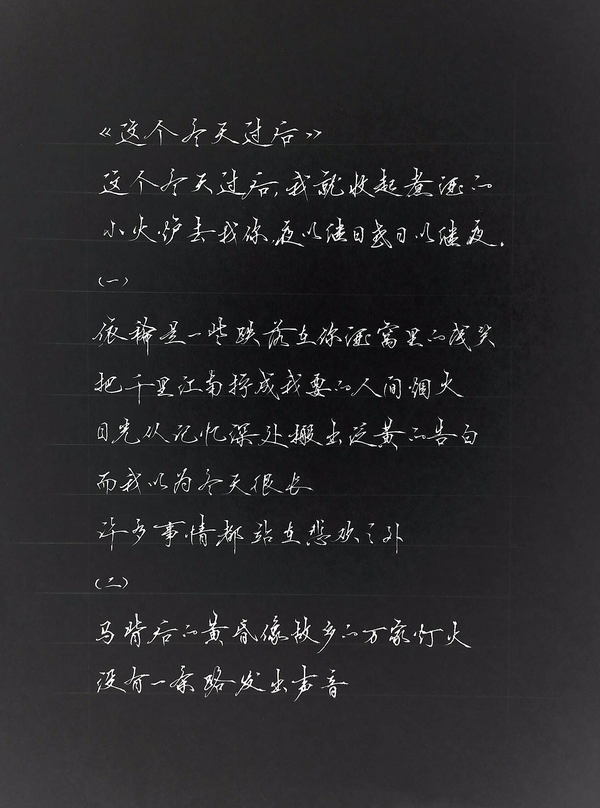 《这个冬天过后》
这个冬天过后,我就收起煮酒的
小火炉去找你,夜以继日或日以继夜.
(一)
依稀是一些跌落在你酒窝里的浅笑
把千里江南捋成我要的人间烟火
日光从记忆深处搬出泛黄的告白
而我以为冬天很长
许多事情都站在悲欢之外
(二)
马背后的黄昏像故乡的万家灯火
没有一条路发出声音